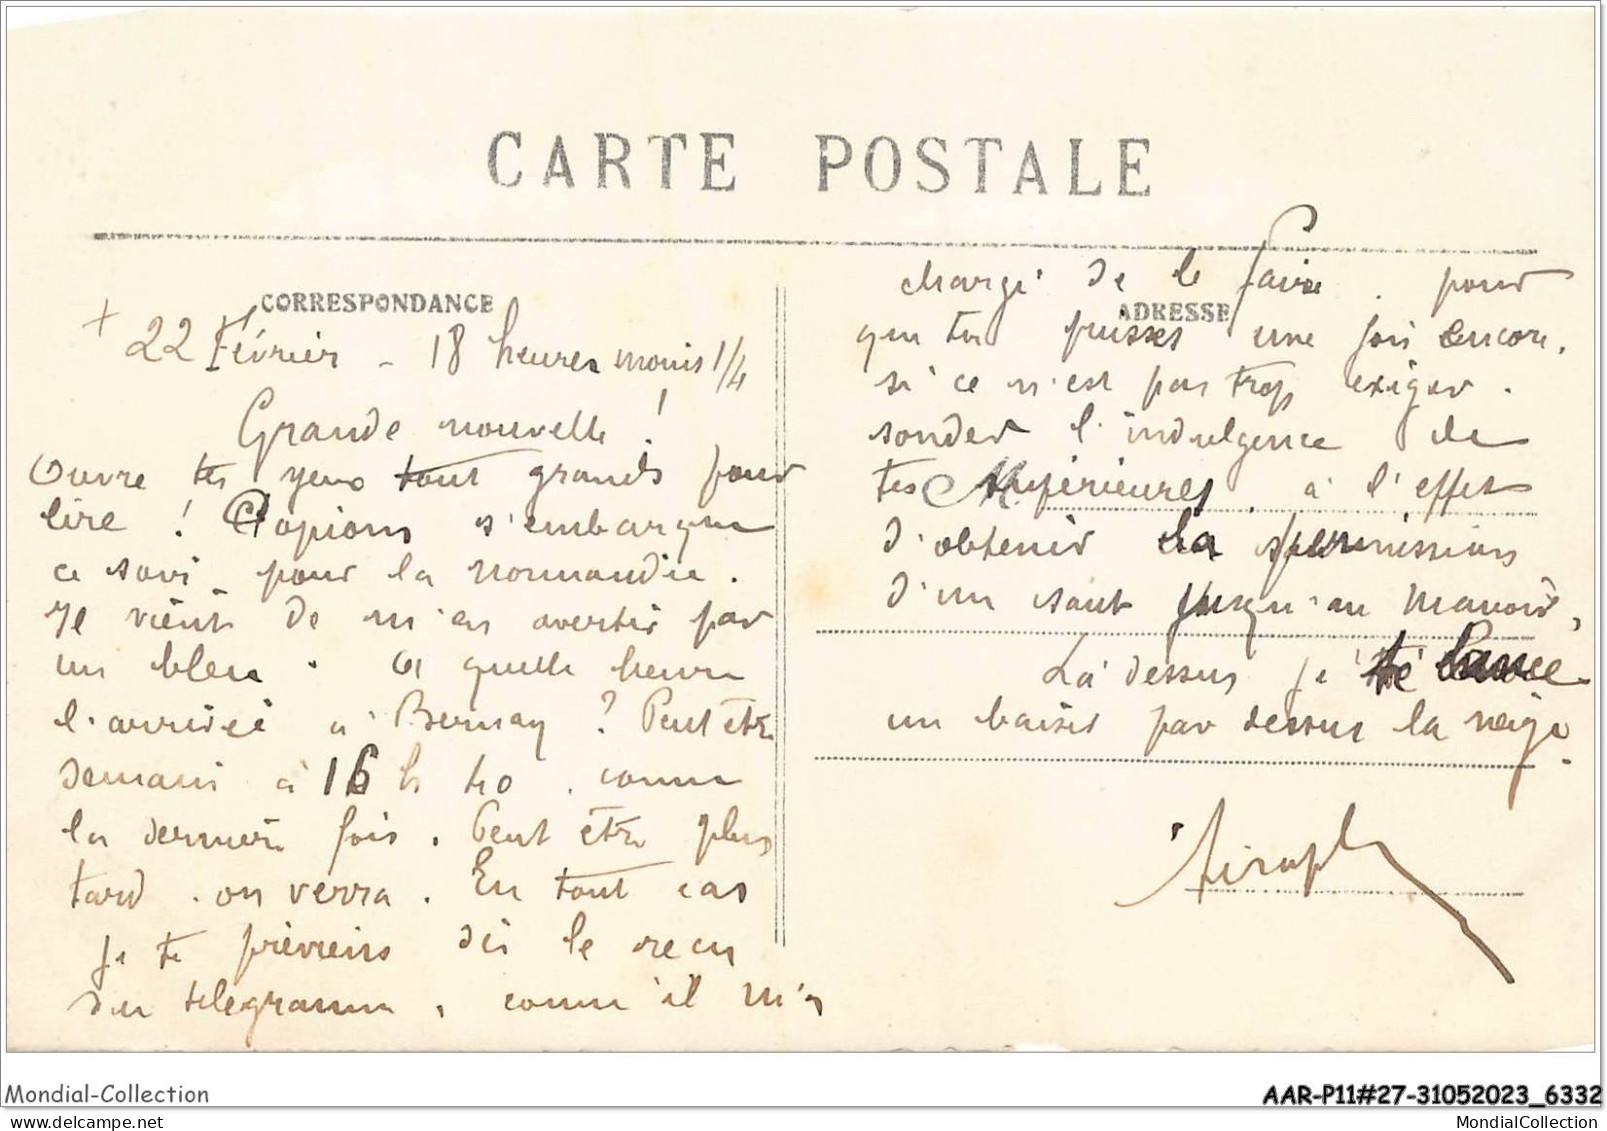 CARTE POSTALE
CORRESPONDANCE
+ 22 Février - 18 heures moins 1/4
Grande nouvelle !
Ouvre tes yeux tout grands pour
lire ! Copions s'embarque
ce soir pour la Normandie.
Il vient de m'en avertir par
un bleu. A quelle heure
l'arrivée à Bernay ? Peut être
demain à 16 h 40. comme
la dernière fois. Peut être plus
tard. on verra. En tout cas
je te préviens dès le reçu
du télégramme, comme il m'a
ADRESSE
chargé de le faire. pour
que tu puisses une fois encore,
si ce n'est pas trop exiger.
sonder l'indulgence de
tes Supérieures, à l'effet
d'obtenir la permission
d'un saut jusqu'au Manoir,
Là dessus je te lance
un baiser par dessus la neige.
Mondial-Collection
AAR-P11#27-31052023_6332
MondialCollection